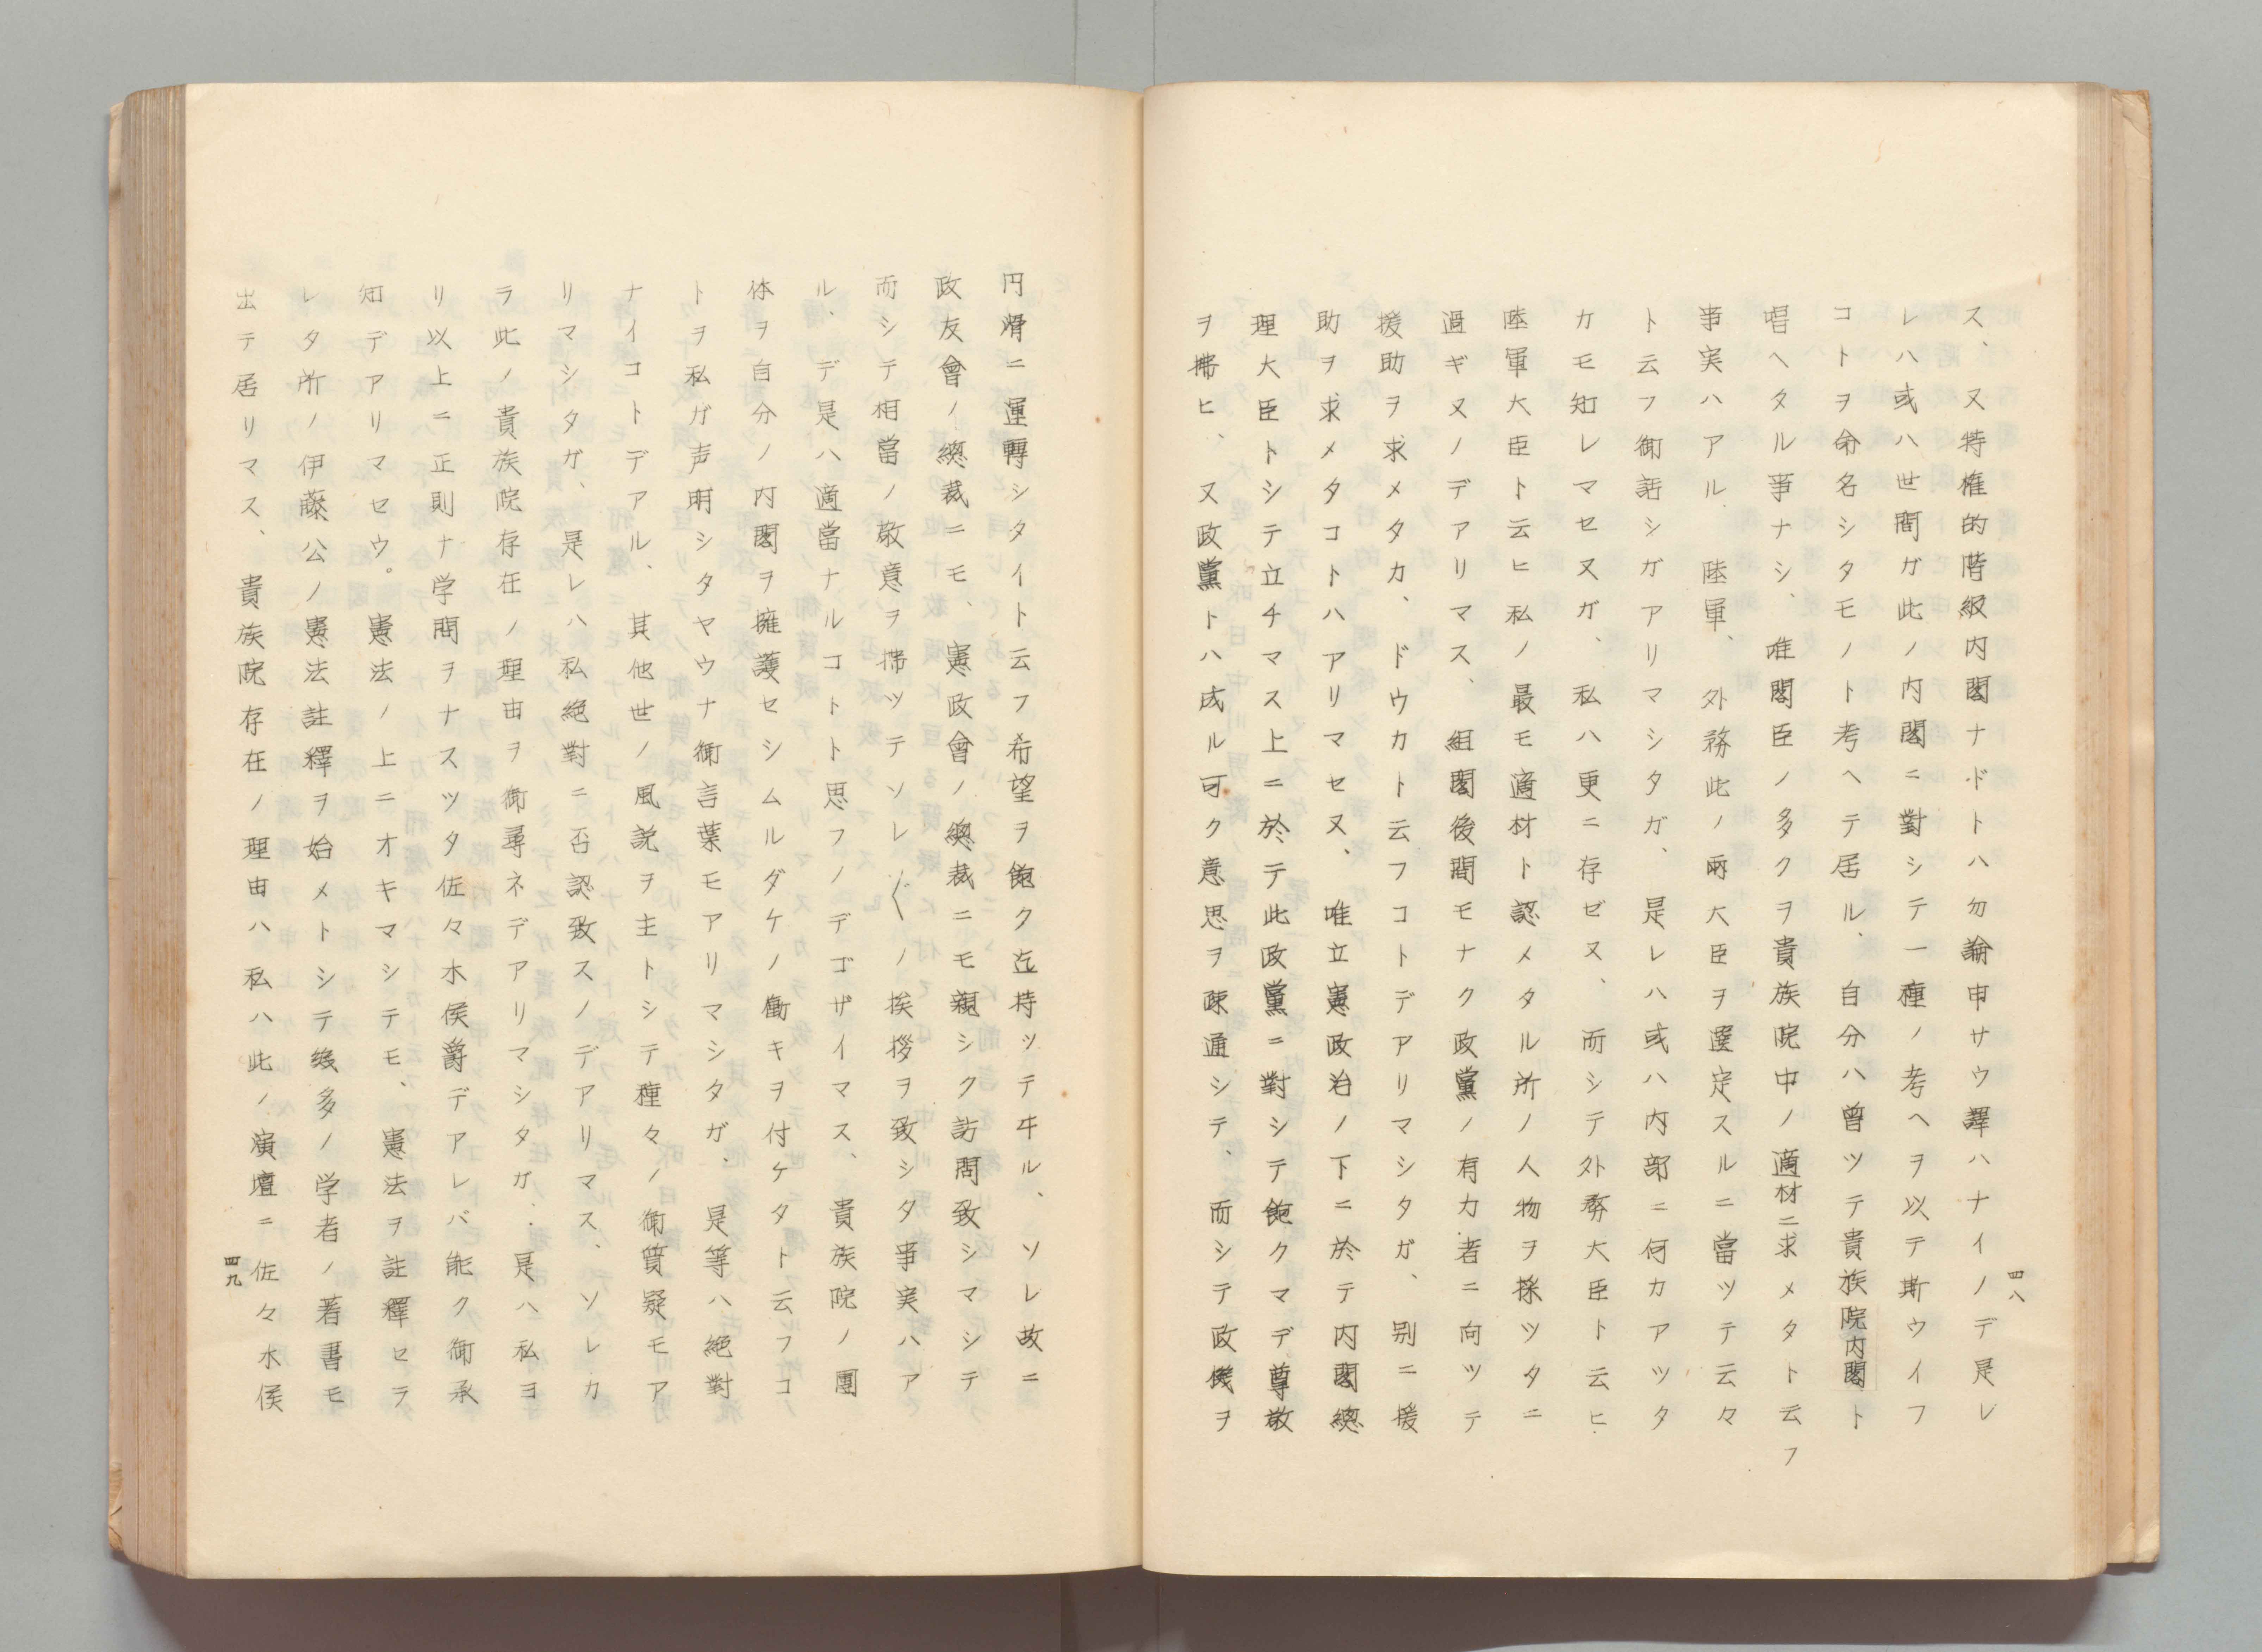 四八
ス、又特権的階級内閣ナドトハ勿論申サウ譯ハナイノデ是レ
レハ或ハ世間ガ此ノ内閣ニ對シテ一種ノ考ヘヲ以テ斯ウイフ
コトヲ命名シタモノト考ヘテ居ル、自分ハ曾ツテ貴族院内閣ト
唱ヘタル事ナシ、唯閣臣ノ多クヲ貴族院中ノ適材ニ求メタト云フ
事実ハアル、陸軍、外務此ノ兩大臣ヲ選定スルニ當ツテ云々
ト云フ御話シガアリマシタガ、是レハ或ハ内部ニ何カアツタ
カモ知レマセヌガ、私ハ更ニ存ゼヌ、而シテ外務大臣ト云ヒ
陸軍大臣ト云ヒ私ノ最モ適材ト認メタル所ノ人物ヲ採ツタニ
過ギヌノデアリマス、組閣後間モナク政黨ノ有力者ニ向ツテ
援助ヲ求メタカ、ドウカト云フコトデアリマシタガ、別ニ援
助ヲ求メタコトハアリマセヌ、唯立憲政治ノ下ニ於テ内閣總
理大臣トシテ立チマス上ニ於テ此政黨ニ對シテ飽クマデ尊敬
ヲ拂ヒ、又政黨トハ成ル可ク意思ヲ疎通シテ、而シテ政機ヲ
円滑ニ運轉シタイト云フ希望ヲ飽ク迄持ッテヰル、ソレ故ニ
政友會ノ總裁ニモ、憲政會ノ總裁ニモ親シク訪問致シマシテ
而シテ相當ノ敬意ヲ拂ツテソレ〴〵ノ挨拶ヲ致シタ事実ハア
ル、デ是ハ適當ナルコトト思フノデゴザイマス、貴族院ノ團
体ヲ自分ノ内閣ヲ擁護セシムルダケノ働キヲ付ケタト云フコ
トヲ私ガ声明シタヤウナ御言葉モアリマシタガ、是等ハ絶對
ナイコトデアル、其他世ノ風説ヲ主トシテ種々ノ御質疑モア
リマシタガ、是レハ私絶對ニ否認致スノデアリマス、ソレカ
ラ此ノ貴族院存在ノ理由ヲ御尋ネデアリマシタガ、是ハ私ヨ
リ以上ニ正則ナ学問ヲナスツタ佐々木侯爵デアレバ能ク御承
知デアリマセウ。憲法ノ上ニオキマシテモ、憲法ヲ註釋セラ
レタ所ノ伊藤公ノ憲法註釋ヲ始メトシテ幾多ノ学者ノ著書モ
出テ居リマス、貴族院存在ノ理由ハ私ハ此ノ演壇ニ佐々木侯
四九